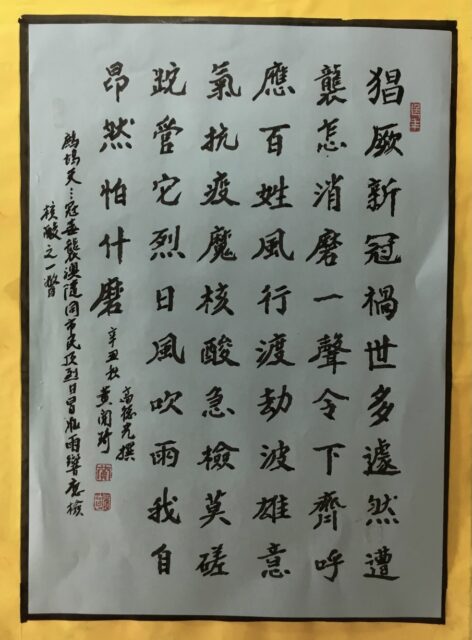 猖厥新冠禍世多遽然遭
襲怎消磨一聲令下齊呼
應百姓風行渡劫波雄意
氣抗疫魔核酸急檢莫磋
跎管它烈日風吹雨我自
昂然怕什磨
高德光撰
辛丑秋 黃開
鷓鴣天：冠毒襲澳隨同市民頂烈日冒雨響應檢
核酸之一瞥